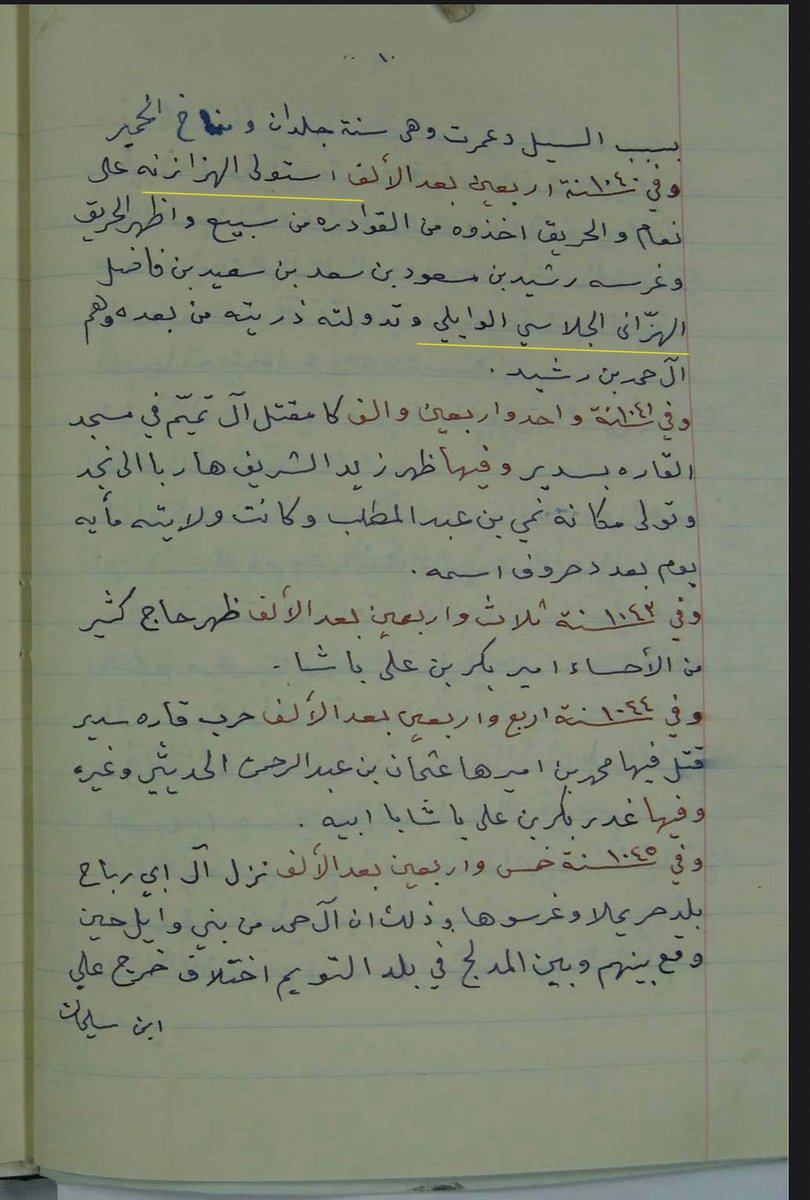 ١٠
بسبب السيل دعمرت وهى سنة جلدان و مناخ الحمير
وفي ١٠٤٠ سنة اربعين بعد الألف استولى الهزازنه على
نعام والحريق اخذوه من القوادره من سبيع واظهر الحريق
وغرسه رشيد بن مسعود بن سعد بن سعيد بن فاضل
الهزّانى الجلاسي الوايلي وتدولته ذريته من بعده وهم
آل حمد بن رشيد .
وفي ١٠٤١ سنة واحد واربعين والف كا مقتل آل تميّم في مسجد
القاره بسدير وفيها ظهر زيد الشريف هاربا الى نجد
وتولى مكانه نمي بن عبد المطلب وكانت ولايته مأيه
يوم بعدد حروف اسمه .
وفي ١٠٤٣ سنة ثلاث واربعين بعد الألف ظهر حاج كثير
من الأحساء امير بكر بن على باشا .
وفي ١٠٤٤ سنة اربع واربعين بعد الألف حرب قاره سدير
قتل فيها محمد بن اميرها عثمان بن عبد الرحمن الحديثي وغيره
وفيها غدر بكر بن على باشا بابيه .
وفي ١٠٤٥ سنة خمس واربعين بعد الألف نزل آل ابي رباح
بلد حريملا وغرسوها وذلك ان آل حمد من بني وايل حين
وقع بينهم وبين المدلج في بلد التويم اختلاف خرج علي
ابن سليمان